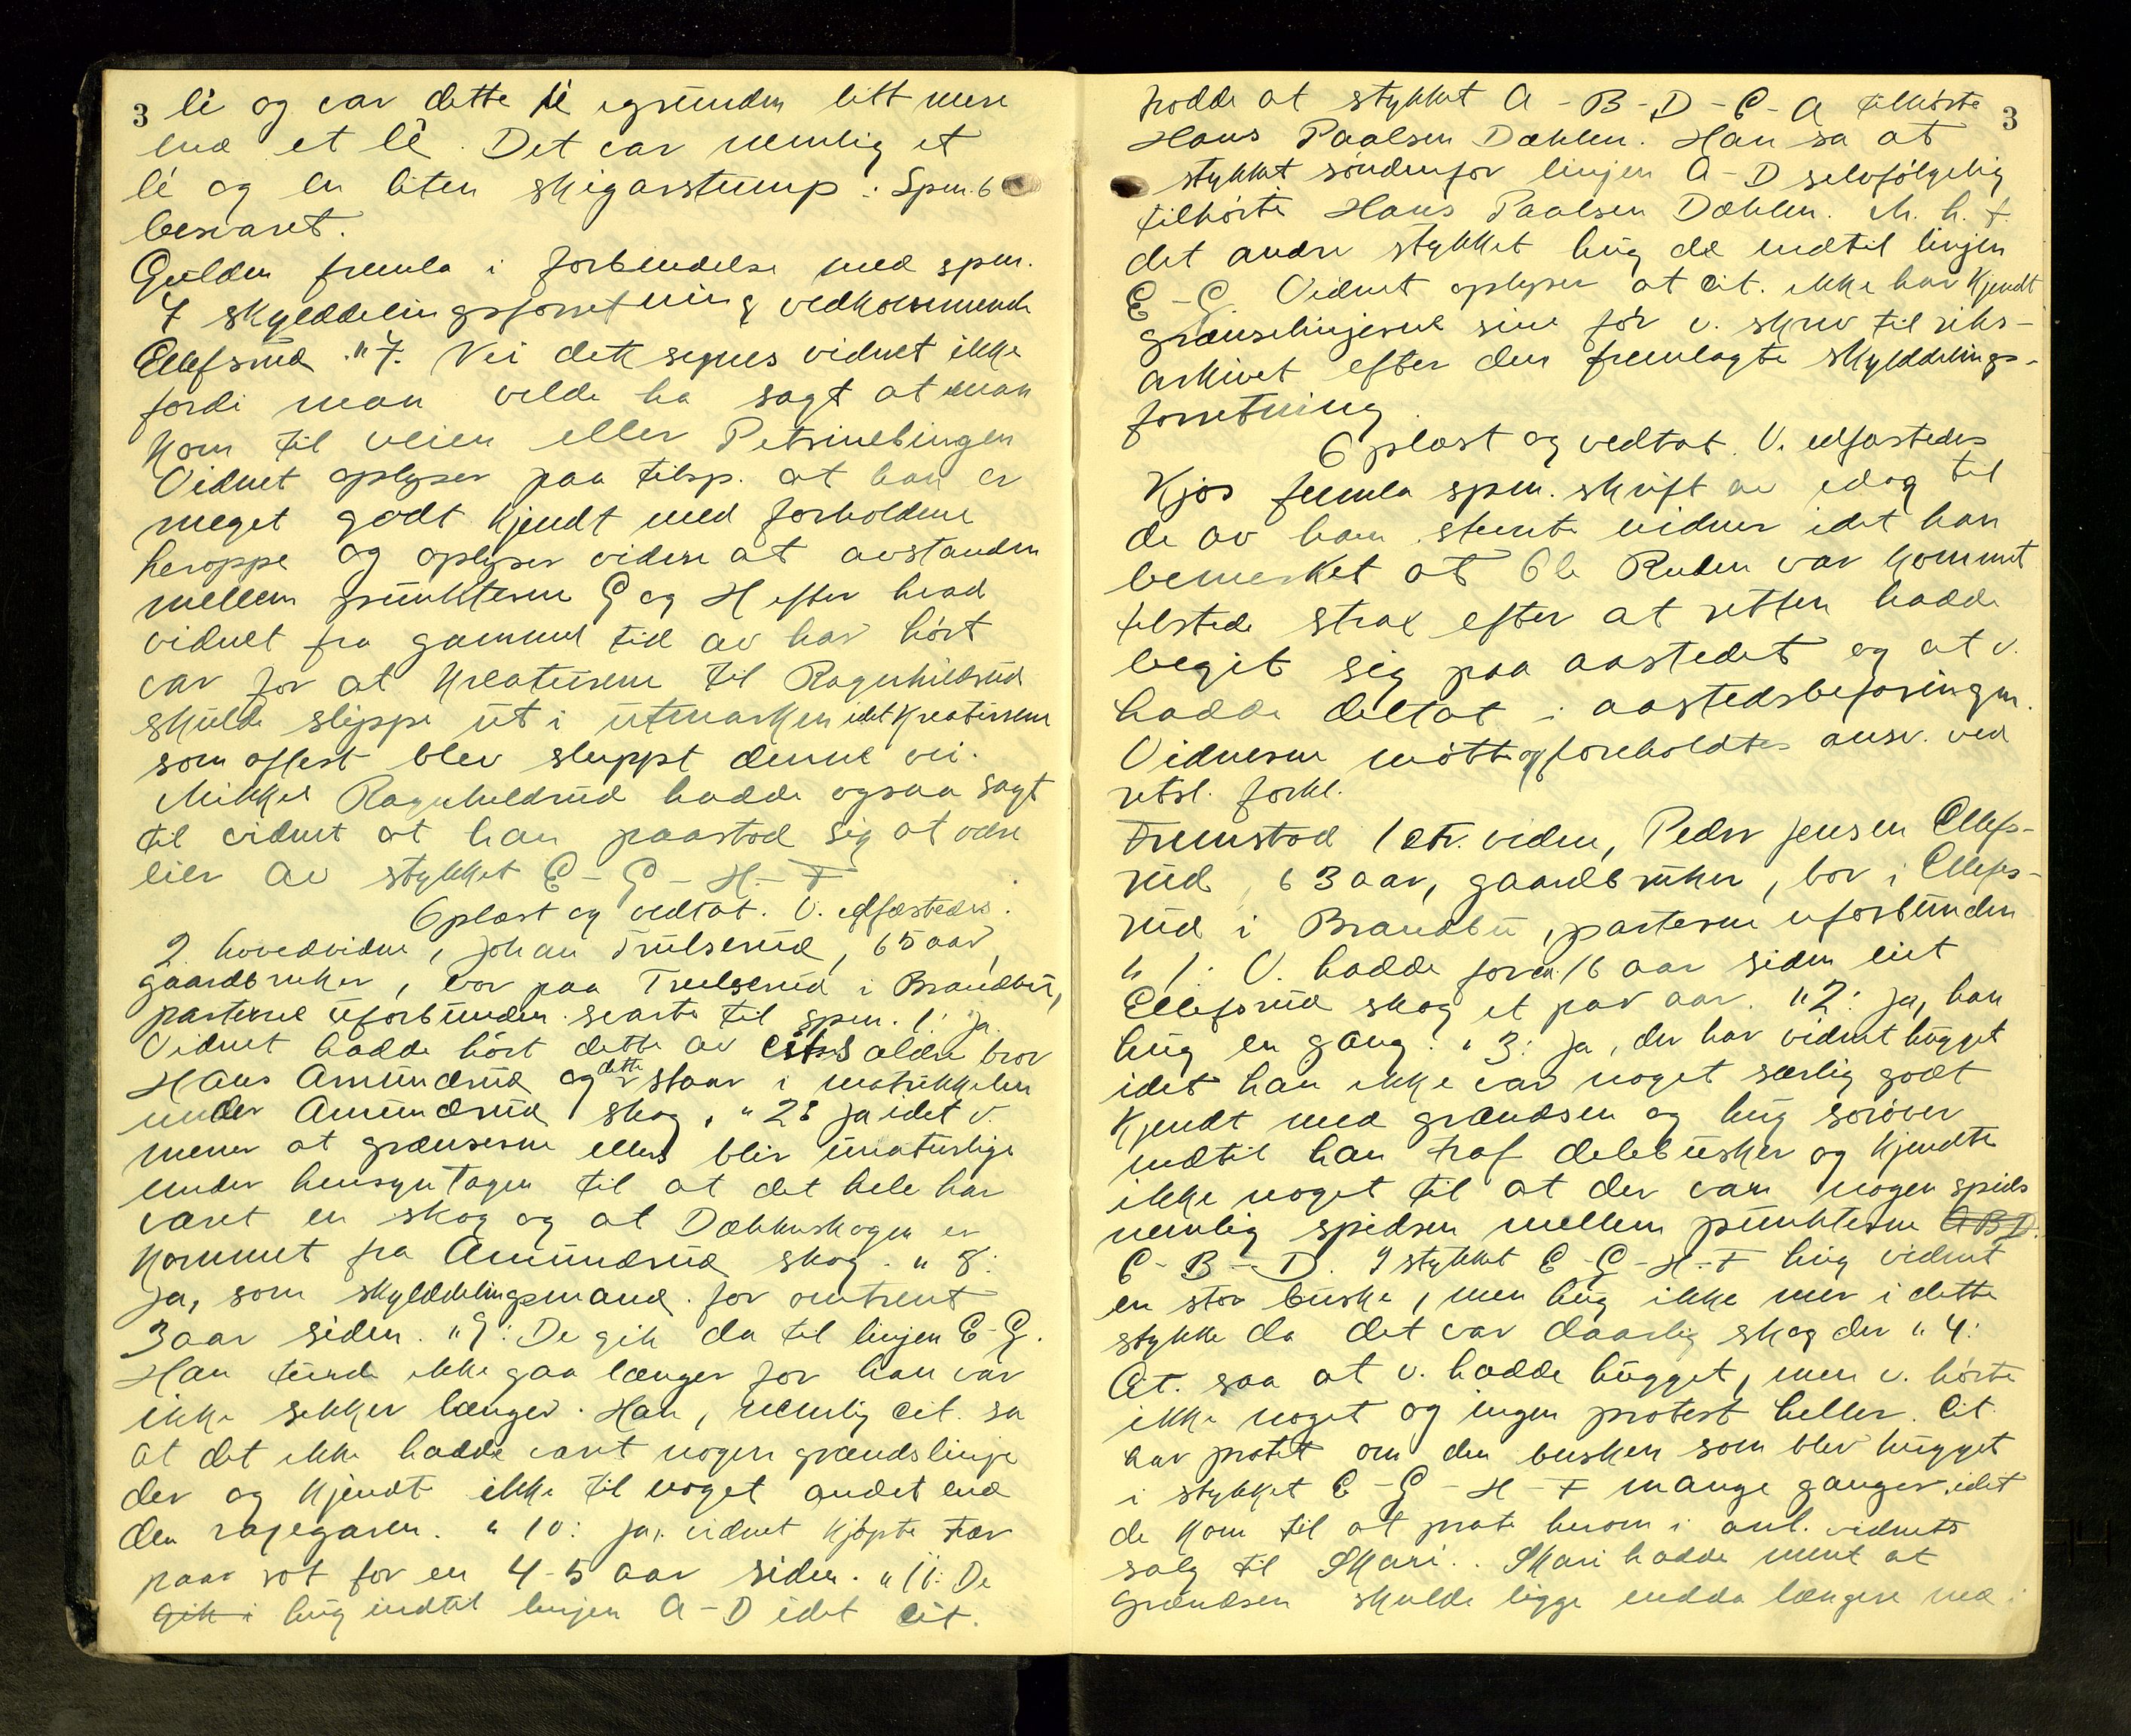 3 lé og var dette lé igrunden litt mere
end et lé. Det var nemlig et
lé og en liten skigarstump. Spm. 6
besvaret.
Gulden fremla i forbindelse med spm.
7 skylddelingsforretning vedkommende
Ellefsrud. "7. Nei dette synes vidnet ikke
fordi man vilde ha sagt at man
kom til veien eller Petrinebingen
Vidnet oplyser paa tilsp. at han er
meget godt kjendt med forholdene
heroppe og oplyser videre at avstanden
mellem punkterne G og H efter hvad
vidnet fra gammel tid av har hørt
var for at kreaturene til Ragnhildrud
skulde slippe ut i utmarken idet kreaturene
som oftest blev sluppt denne vei.
Mikkel Ragnhildrud hadde ogsaa sagt
til vidnet at han paastod sig at være
eier av stykket E - G - H - F
Oplæst og vedtat. V. edfæstedes.
2. hovedvidne, Johan Trulserud, 65 aar,
gaardbruker, bor paa Trulserud i Brandbu,
parterne uforbunden. svarte til spm. 1: Ja.
Vidnet hadde hørt dette av cits ældre bror
Hans Amundrud og dette staar i matrikkelen
under Amundrud skog. " 2: Ja idet v.
mener at grænserne ellers blir unaturlige
under hensyntagen til at det hele har
været en skog og at Dæhlenskogen er
kommet fra Amundrud skog. " 8:
Ja, som skylddelingsmand for omtrent
3 aar siden. " 9: De gik da til linjen E-G.
Han turde ikke gaa længer for han var
ikke sikker længer. Han, nemlig cit. sa
at det ikke hadde vært nogen grændslinje
der og kjendte ikke til noget andet end
den rajegaren. " 10: Ja, vidnet kjøpte tær
paa rot for en 4-5 aar siden. " 11: De
gik i hug indtil linjen A - D idet cit.
trodde at stykket A - B - D - C - A tilhørte 3
Hans Paalsen Dæhlen. Han sa at
stykket søndenfor linjen A - D selvfølgelig
tilhørte Hans Paalsen Dæhlen. M. h. t.
det andre stykket hug de indtil linjen
E - G. Vidnet oplyser at cit. ikke har kjendt
grænselinjerne sine før v. skrev til riks-
arkivet efter den fremlagte skylddelings-
forretning.
Oplæst og vedtat. V. edfæstedes
Kjos fremla spm. skrift av idag til
de av ham stevnte vidner idet han
bemerket at Ole Ruden var kommet
tilstede strax efter at retten hadde
begit sig paa aastedet og at v.
hadde deltat i aastedsbefaringen.
Vidnerne møtte og foreholdtes ansv. ved
retsl. forkl.
Fremstod 1 ctr. vidne, Peder Jensen Ellefs-
rud, 63 aar, gaardbruker, bor i Ellefs-
rud i Brandbu, parterne uforbunden
" 1: V. hadde for en 16 aar siden eiet
Ellefsrud skog et par aar. " 2: Ja, han
hug en gang. " 3: Ja, der har vidnet hugget
idet han ikke var noget særlig godt
kjendt med grændsen og hug sørover
indtil han traf delebusker og kjendte
ikke noget til at der var nogen spids
nemlig spidsen mellem punkterne A B D.
C - B - D. I stykket E - G - H - F hug vidnet
en stor buske, men hug ikke mer i dette
stykke da det var daarlig skog der " 4:
Cit. saa at v. hadde hugget, men v. hørte
ikke noget og ingen protest heller. Cit.
har pratet om den busken som blev hugget
i stykket E - G - H - F mange ganger, idet
de kom til at prate herom i anl. vidnets
salg til Skari. Skari hadde ment at
grændsen skulde ligge endda længere ned